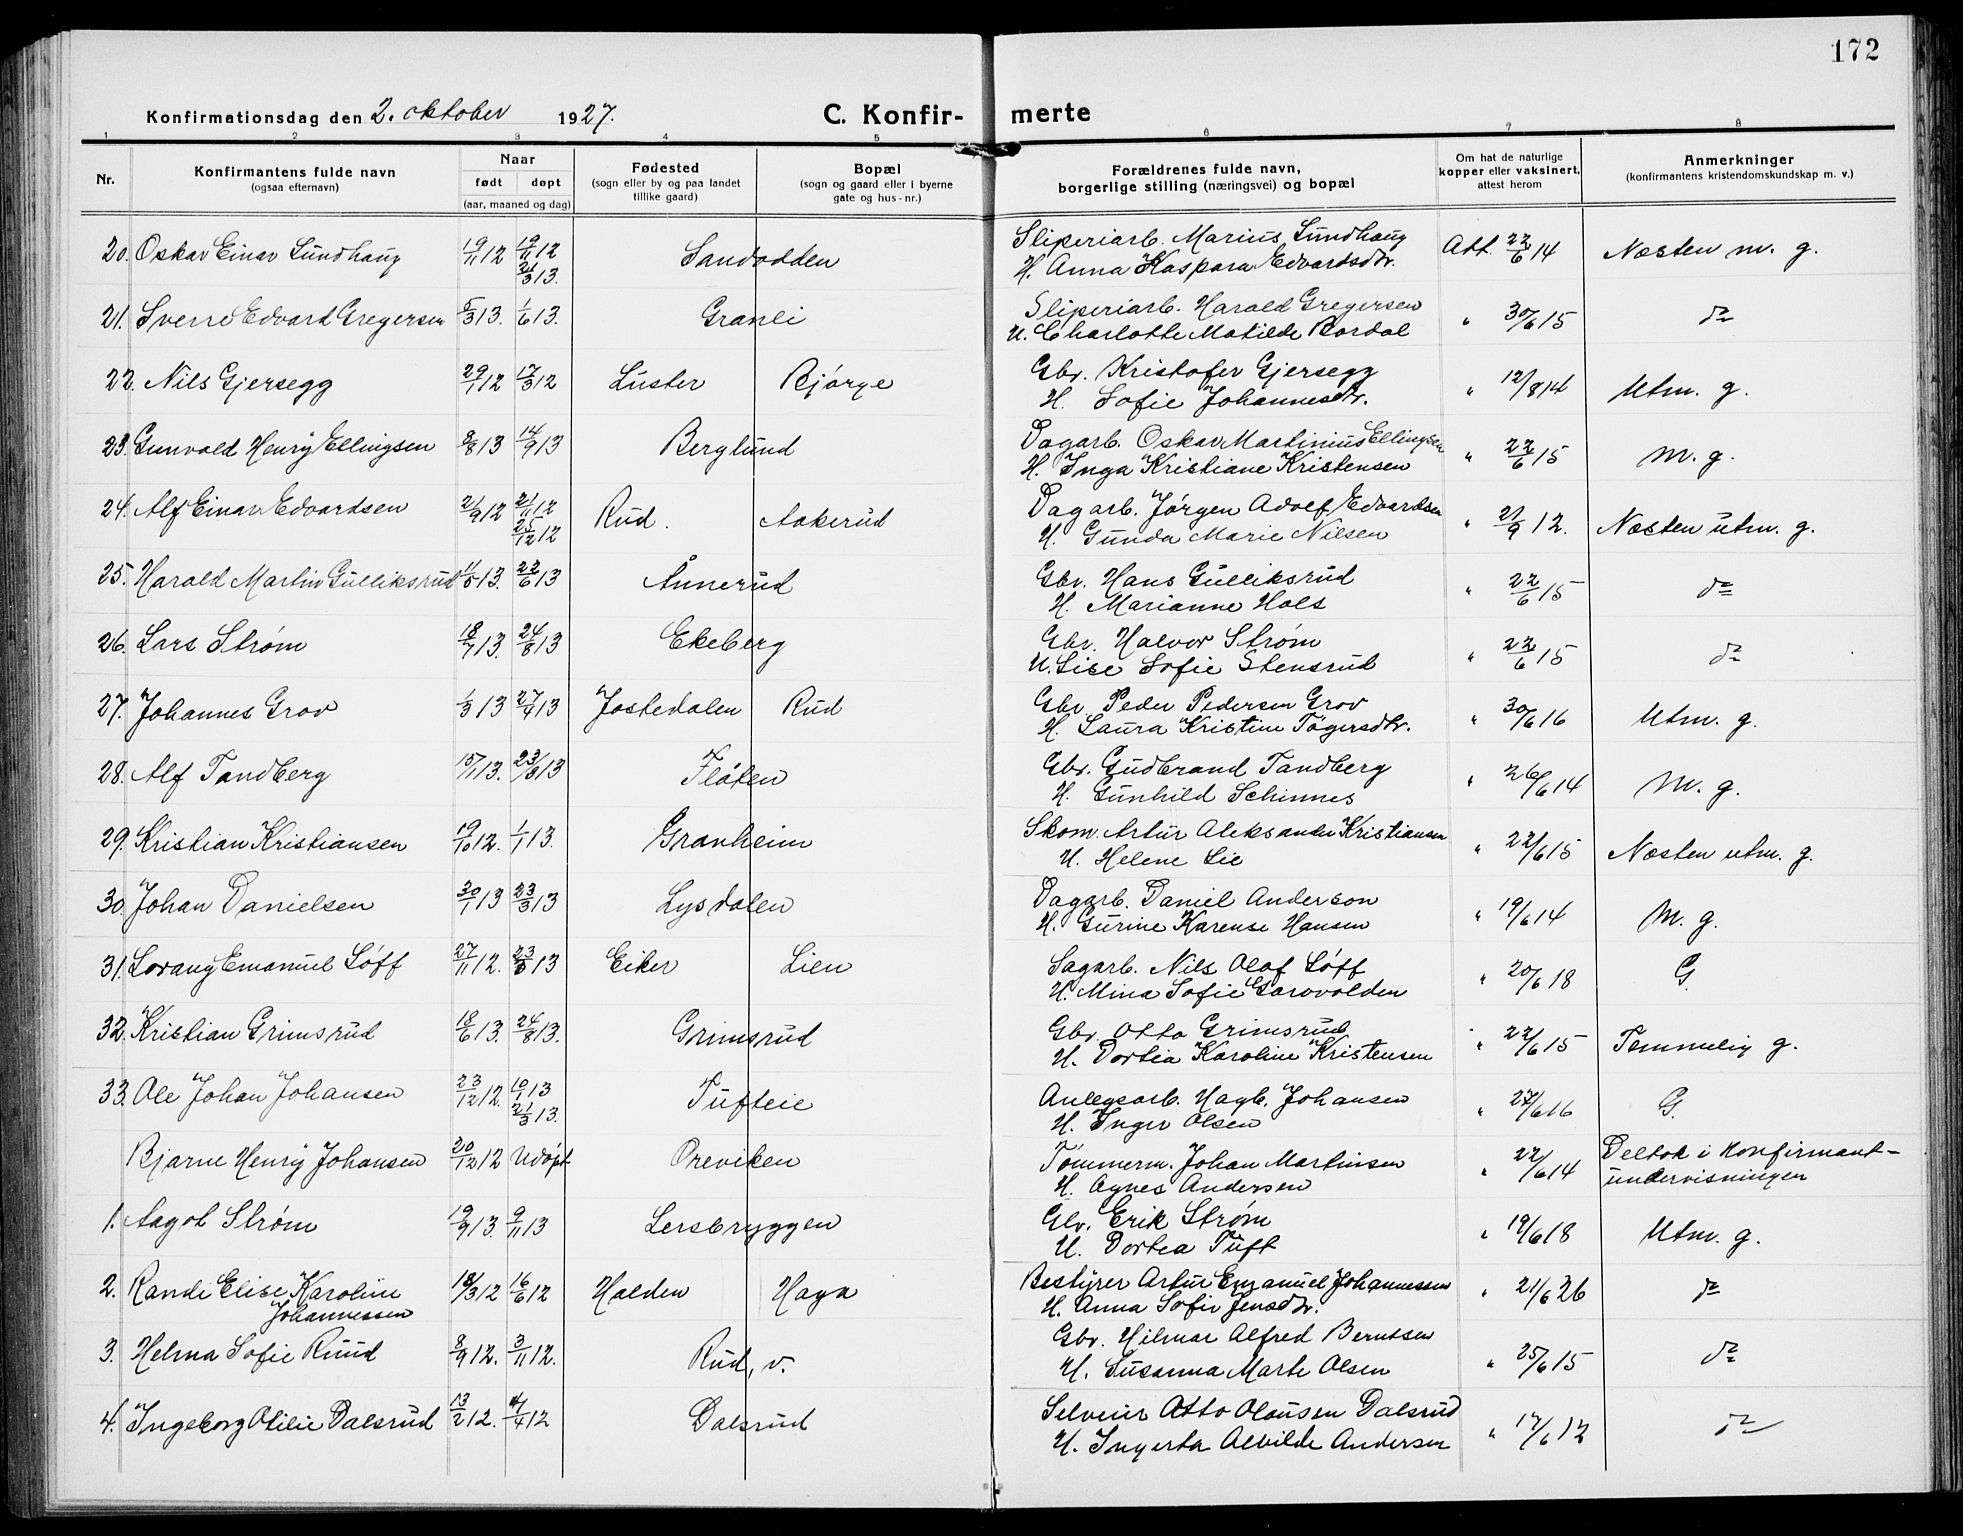 172
Konfirmationsdag den 2. oktober 1927. C. Konfir- merte
1 2 3 4 5 6 7 8
Nr. Konfirmantens fulde navn (ogsaa efternavn) Naar født døpt (aar, maaned og dag) Fødested (sogn eller by og paa landet tillike gaard) Bopæl (sogn og gaard eller i byerne gate og hus-nr.) Forældrenes fulde navn, borgerlige stilling (næringsvei) og bopæl Om hat de naturlige kopper eller vaksinert, attest herom Anmerkninger (konfirmantens kristendomskundskap m. v.)
20. Oskar Einar Sundhaug 19/11 12 19/11 12 Sandodden Sliperiarb. Marius Sundhaug Att. 22/6 14 Næsten m. g.
H. Anna Kaspara Edvardsdtr.
21. Sverre Edvard Gregersen 5/3 13. 1/6 13. Granli Sliperiarb. Harald Gregersen " 30/6 15 do
H. Charlotte Matilde Bordal
22. Nils Gjersegg 29/1 12 17/3 12 Luster Bjørge Gbr. Kristofer Gjersegg " 12/8 14 Utm. g.
H. Sofie Johannesdtr.
23. Gunvald Henry Ellingsen 8/8 13 14/9 13 Berglund Dagarb. Oskar Martinius Ellingsen " 22/6 15 M. g.
H. Inga Kristiane Kristensen
24. Alf Einar Edvardsen 21/9 12 21/11 12 Rud. Aakerud Dagarb. Jørgen Adolf Edvardsen " 21/9 12. Næsten utm. g.
25/12 12 H. Gunda Marie Nilsen
25. Harald Martin Gulliksrud 11/5 13. 22/6 13 Ånnerud Gbr. Hans Gulliksrud " 22/6 15 do
H. Marianne Hols
26. Lars Strøm 18/7 13. 24/8 13 Ekeberg Gbr. Halvor Strøm " 22/6 15 do
H. Lise Sofie Stensrud
27. Johannes Grov 1/3 13 27/4 13 Jostedalen Rud Gbr. Peder Pedersen Grov " 30/6 16 Utm. g.
H. Laura Kristine Tøgersdtr.
28. Alf Tandberg 15/1 13. 23/3 13 Fløten Gbr. Gudbrand Tandberg " 26/6 14 M. g.
H. Gunhild Schinnes
29. Kristian Kristiansen 19/10 12. 1/1 13. Granheim Skom. Artur Aleksander Kristiansen " 22/6 15 Næsten utm. g.
H. Helene Lie
30. Johan Danielsen 30/1 13 23/3 13 Lysdalen Dagarb. Daniel Anderson " 19/6 14 M. g.
H. Gurine Karense Hansen
31. Lorang Emanuel Løff 27/11 12. 23/3 13 Eiker Lien Sagarb. Nils Olaf Løff " 20/6 18 G.
H. Mina Sofie Garvolden
32. Kristian Grimsrud 18/6 13. 24/8 13. Grimsrud Gbr. Otto Grimsrud " 22/6 15 Temmelig g.
H. Dortea Karoline Kristensen
33. Ole Johan Johansen 23/12 12. 10/1 13 Tufteie Anlegsarb. Hagb. Johansen " 27/6 16 G.
21/3 13. H. Inger Olsen
Bjarne Henry Johansen 20/12 12 Udøpt Oreviken Tømmerm. Johan Martinsen " 22/6 14 Deltok i konfirmant-
H. Agnes Andersen undervisningen
1. Aagot Strøm 19/9 13. 9/11 13 Lersbryggen Gbr. Erik Strøm " 19/6 18 Utm. g.
H. Dortea Tuft
2. Randi Elise Karoline 18/3 12 16/6 12 Halden Haga Bestyrer Artur Emanuel Johannessen " 21/6 26 do
Johannessen H. Anna Sofie Jensdtr.
3. Helma Sofie Ruud 8/9 12. 3/11 12. Rud, v. Gbr. Hilmar Alfred Berntsen " 25/6 15 do
H. Susanna Marte Olsen
4. Ingeborg Otilie Dalsrud 13/2 12. 4/4 12 Dalsrud Selveier Otto Olausen Dalsrud " 17/6 12 do
H. Ingerta Alvilde Andersen